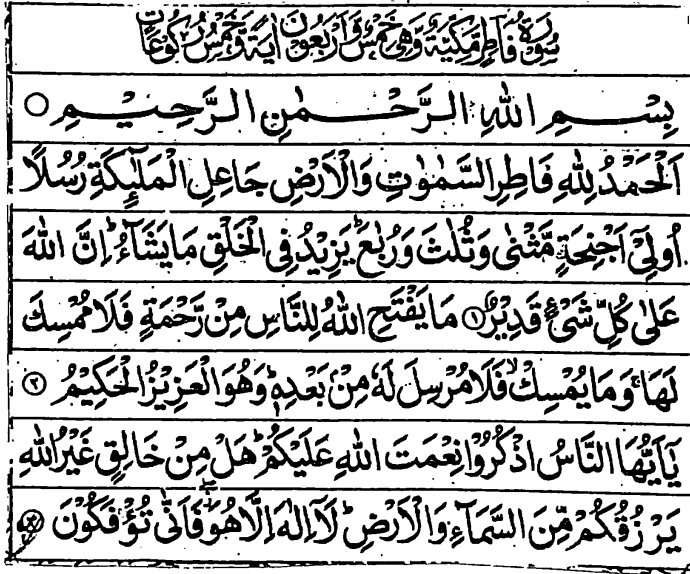 سُوْرَةُ فَاطِرٍ مَّكِّيَّةٌ وَّهِيَ خَمْسٌ وَّاَرْبَعُوْنَ اٰيَةً وَّخَمْسُ رُكُوْعَاتٍ
بِسْمِ اللهِ الرَّحْمٰنِ الرَّحِيْمِ ○
اَلْحَمْدُ لِلّٰهِ فَاطِرِ السَّمٰوٰتِ وَالْاَرْضِ جَاعِلِ الْمَلٰٓئِكَةِ رُسُلًا
اُولِيْٓ اَجْنِحَةٍ مَّثْنٰى وَثُلٰثَ وَرُبٰعَ ؕ يَزِيْدُ فِي الْخَلْقِ مَا يَشَآءُ ؕ اِنَّ اللهَ
عَلٰى كُلِّ شَيْءٍ قَدِيْرٌ ① مَا يَفْتَحِ اللهُ لِلنَّاسِ مِنْ رَّحْمَةٍ فَلَا مُمْسِكَ
لَهَا ۚ وَمَا يُمْسِكْ ۙ فَلَا مُرْسِلَ لَهٗ مِنْۢ بَعْدِهٖ ؕ وَهُوَ الْعَزِيْزُ الْحَكِيْمُ ②
يٰٓاَيُّهَا النَّاسُ اذْكُرُوْا نِعْمَتَ اللهِ عَلَيْكُمْ ؕ هَلْ مِنْ خَالِقٍ غَيْرُ اللهِ
يَرْزُقُكُمْ مِّنَ السَّمَآءِ وَالْاَرْضِ ؕ لَآ اِلٰهَ اِلَّا هُوَ ۖ فَاَنّٰى تُؤْفَكُوْنَ ③